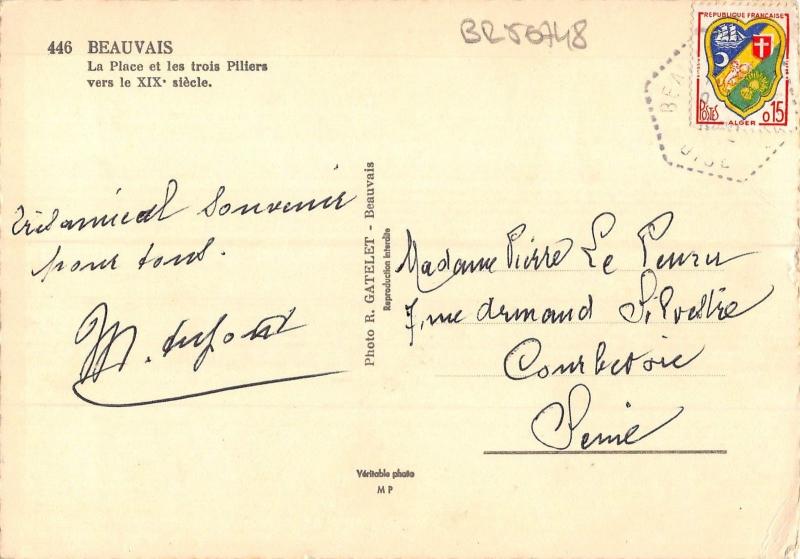 BR50748
446 BEAUVAIS
La Place et les trois Piliers
vers le XIXᵉ siècle.
REPUBLIQUE FRANÇAISE
POSTES
0,15
ALGER
BEAU
OISE
Très amical souvenir
pour tous.
M. Dufour
Photo R. GATELET - Beauvais
Reproduction interdite
Madame Pierre Le
7, rue Armand Silvestre
Courbevoie
Seine
Véritable photo
M P